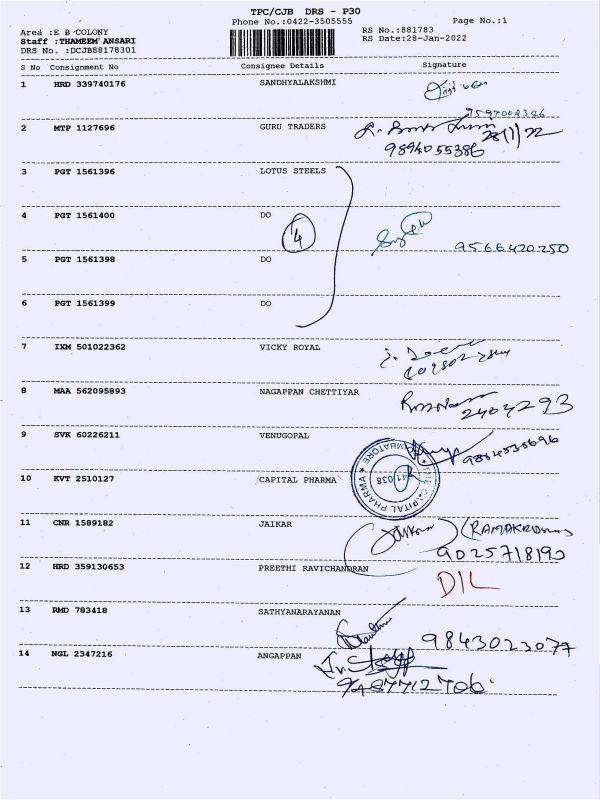 TPC/CJB DRS - P30
Phone No.:0422-3505555
Page No.:1
Area :E B COLONY
Staff :THAMEEM ANSARI
DRS No. :DCJB88178301
RS No.:881783
RS Date:28-Jan-2022
S No Consignment No Consignee Details Signature
1 HRD 339740176 SANDHYALAKSHMI
2 MTP 1127696 GURU TRADERS
28/1/22
9894055386
3 PGT 1561396 LOTUS STEELS
4 PGT 1561400 DO
4
9566420250
5 PGT 1561398 DO
6 PGT 1561399 DO
7 IXM 501022362 VICKY ROYAL
8 MAA 562095893 NAGAPPAN CHETTIYAR
2404293
9 SVK 60226211 VENUGOPAL
10 KVT 2510127 CAPITAL PHARMA
CAPITAL PHARMA
11 CNR 1589182 JAIKAR
9025718190
12 HRD 359130653 PREETHI RAVICHANDRAN
DIL
13 RMD 783418 SATHYANARAYANAN
9843023077
14 NGL 2347216 ANGAPPAN